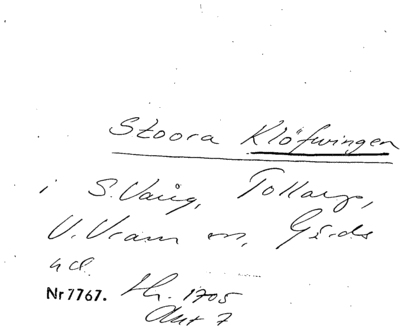 Stoora Klöfwingen
i S. Vång, Tollarp,
V. Vram sn, Gärds
hd.
Nr 7767. 1705
Akt 7